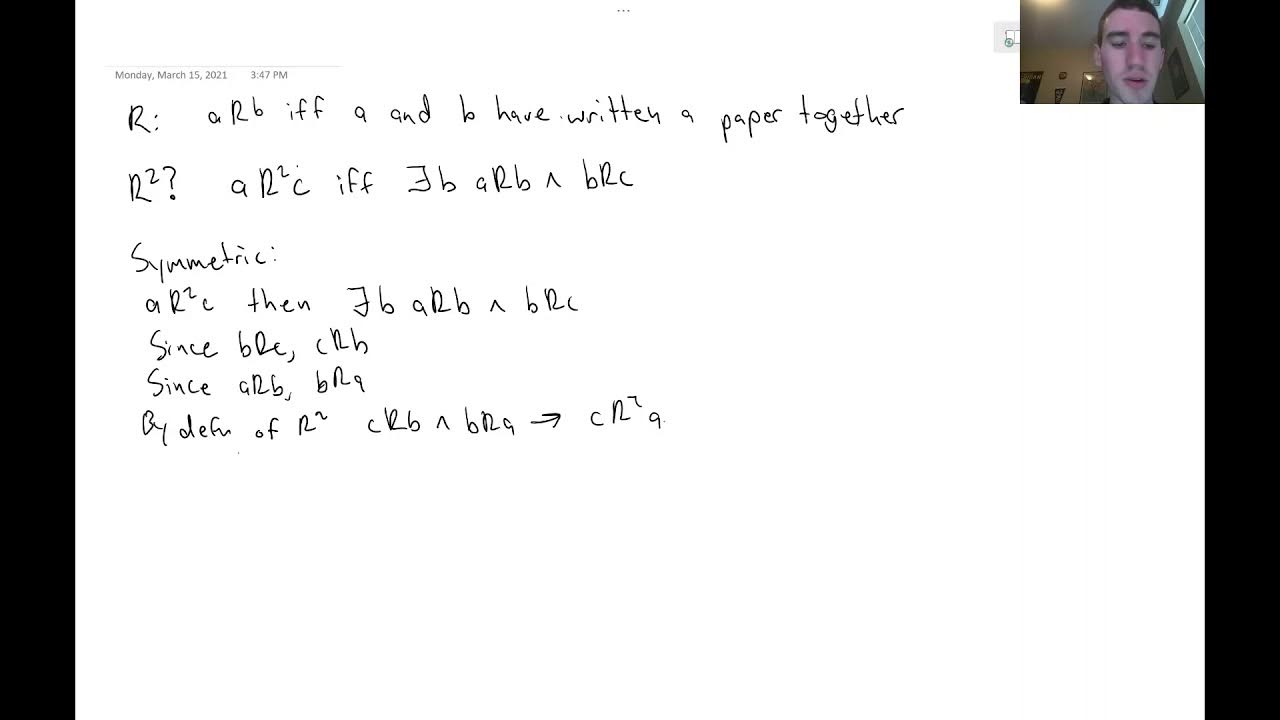 Monday, March 15, 2021 3:47 PM
R: aRb iff a and b have written a paper together
R²? aR²c iff ∃b aRb ∧ bRc
Symmetric:
aR²c then ∃b aRb ∧ bRc
Since bRc, cRb
Since aRb, bRa
By defn of R² cRb ∧ bRa → cR²a